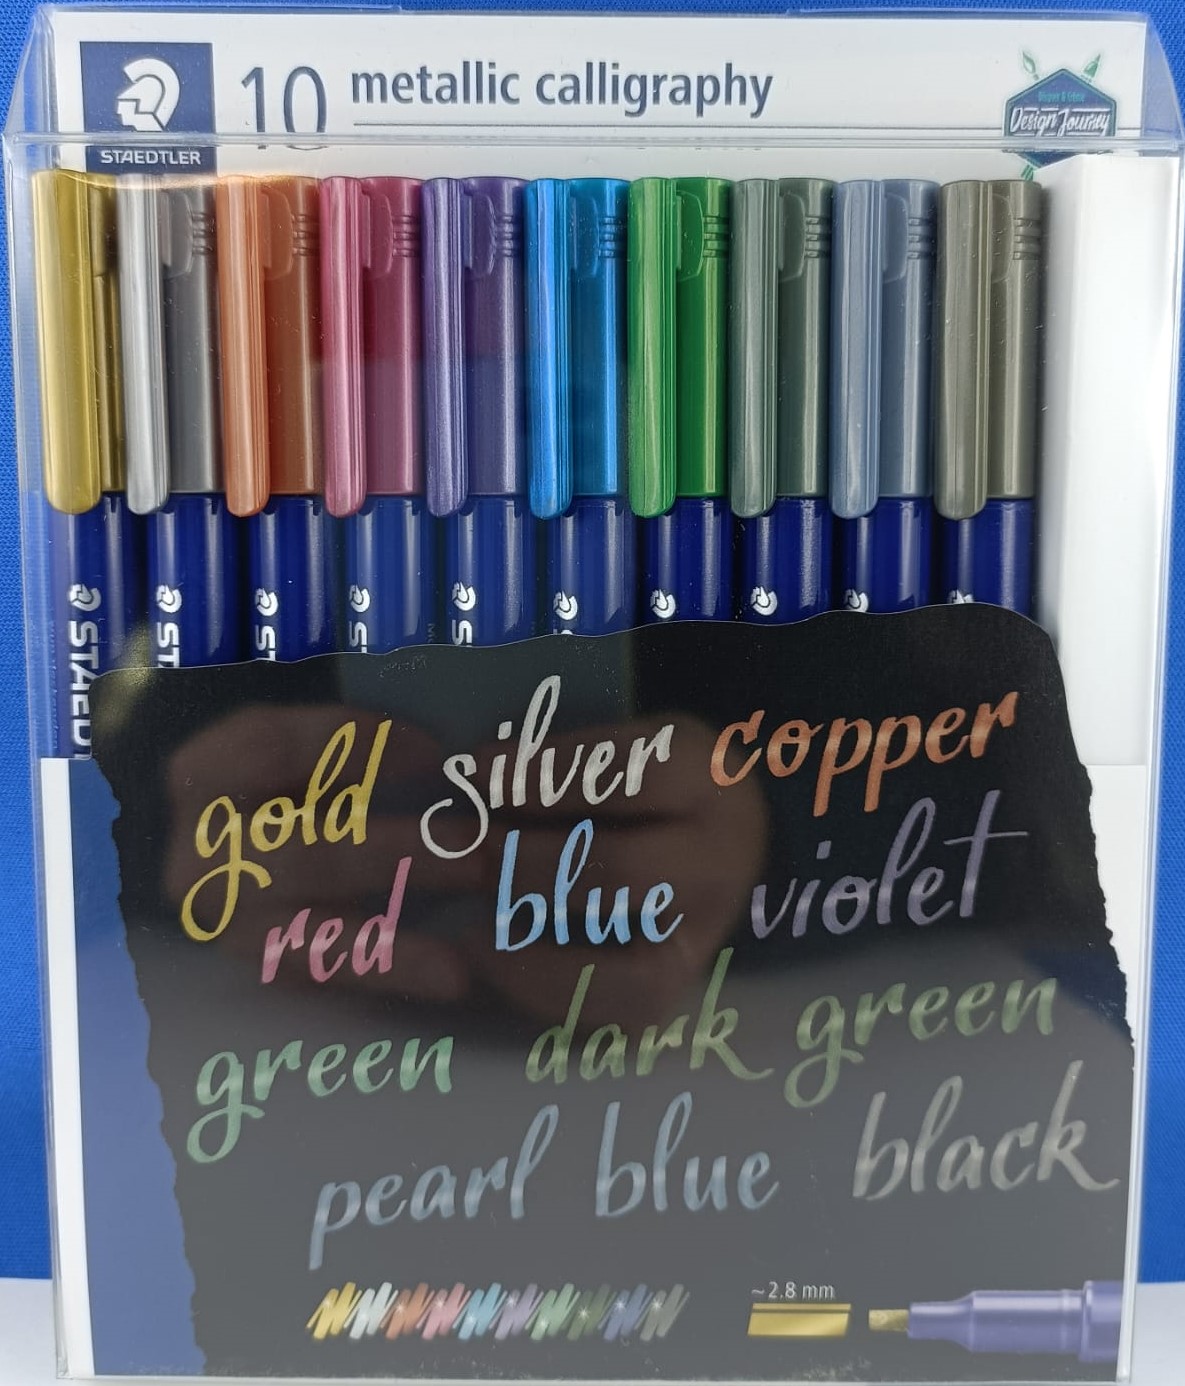 10 metallic calligraphy
STAEDTLER
Design Journey
STAEDT
ST
ST
S
S
gold silver copper
red blue violet
green dark green
pearl blue black
~2.8 mm